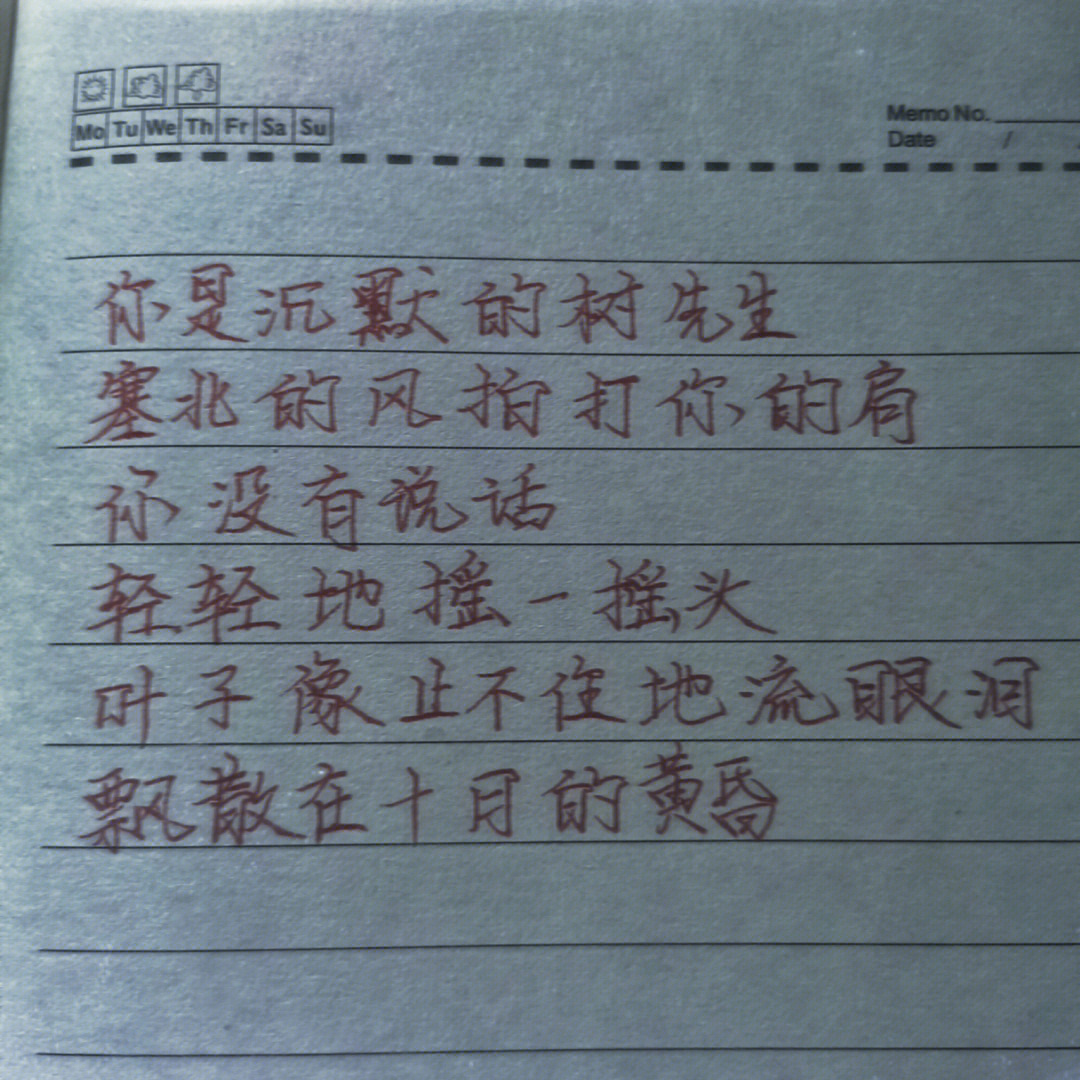 Mo Tu We Th Fr Sa Su
Memo No.
Date / 
你是沉默的树先生
塞北的风拍打你的肩
你没有说话
轻轻地摇一摇头
叶子像止不住地流眼泪
飘散在十月的黄昏